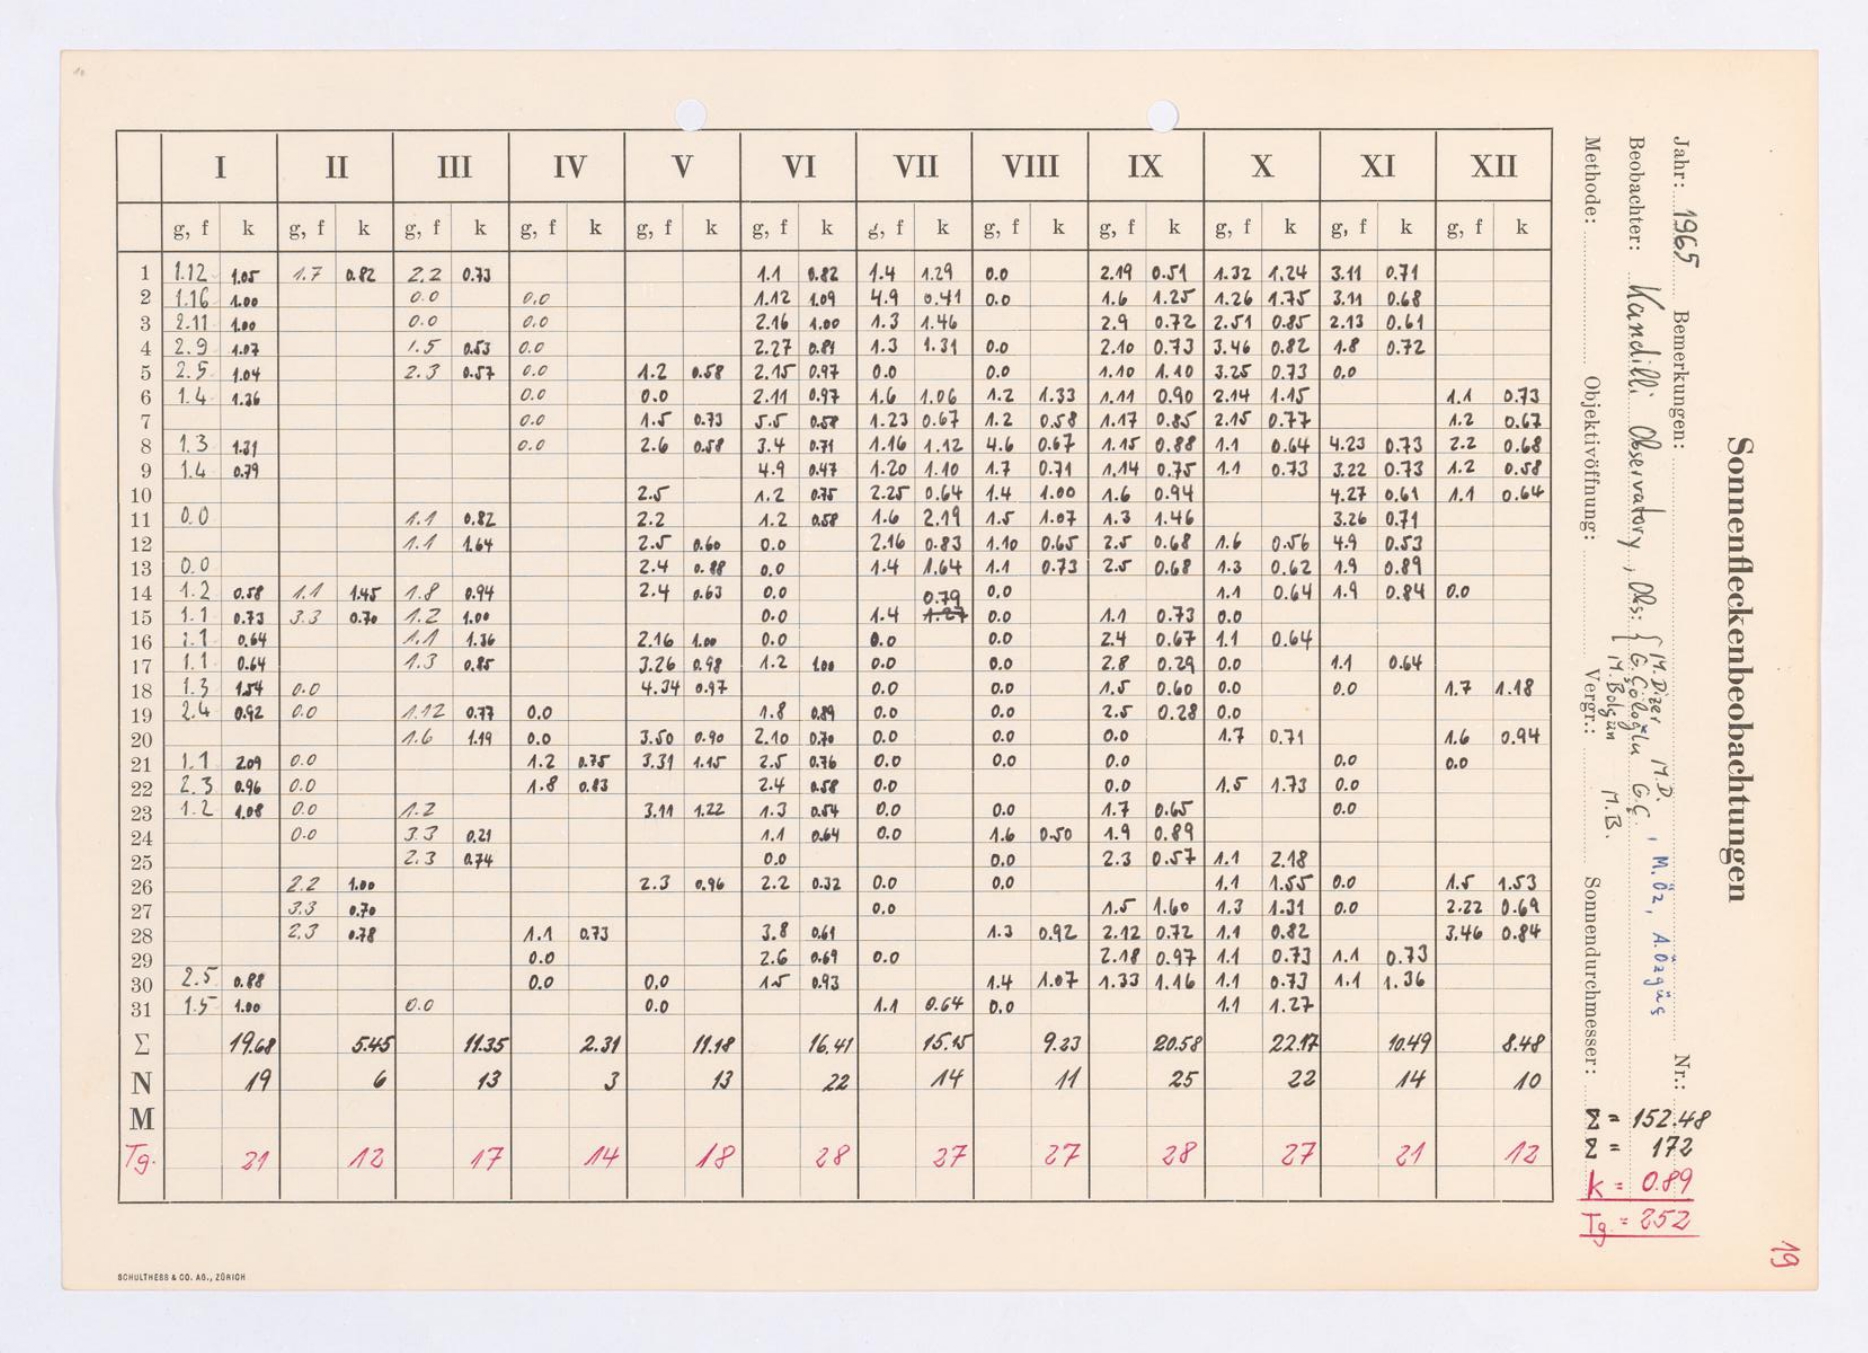 Sonnenfleckenbeobachtungen
Jahr: 1965 Bemerkungen: Nr.:
Beobachter: Kandilli Observatory, Obs: { M. Dizer M.D., M. Öz, A. Özgüş
G. Çöloğlu G.Ç.
M. Bolgün M.B.
Methode: Objektivöffnung: Vergr.: Sonnendurchmesser:
I II III IV V VI VII VIII IX X XI XII
g, f k g, f k g, f k g, f k g, f k g, f k g, f k g, f k g, f k g, f k g, f k g, f k
1 1.12 1.05 1.7 0.82 2.2 0.73 1.1 0.82 1.4 1.29 0.0 2.19 0.51 1.32 1.24 3.11 0.71
2 1.16 1.00 0.0 0.0 1.12 1.09 4.9 0.41 0.0 1.6 1.25 1.26 1.75 3.11 0.68
3 2.11 1.00 0.0 0.0 2.16 1.00 1.3 1.46 2.9 0.72 2.51 0.85 2.13 0.61
4 2.9 1.07 1.5 0.53 0.0 2.27 0.81 1.3 1.31 0.0 2.10 0.73 3.46 0.82 1.8 0.72
5 2.5 1.04 2.3 0.57 0.0 1.2 0.58 2.15 0.97 0.0 0.0 1.10 1.10 3.25 0.73 0.0
6 1.4 1.36 0.0 0.0 2.11 0.97 1.6 1.06 1.2 1.33 1.11 0.90 2.14 1.15 1.1 0.73
7 0.0 1.5 0.73 5.5 0.58 1.23 0.67 1.2 0.58 1.17 0.85 2.15 0.77 1.2 0.67
8 1.3 1.31 0.0 2.6 0.58 3.4 0.71 1.16 1.12 4.6 0.67 1.15 0.88 1.1 0.64 4.23 0.73 2.2 0.68
9 1.4 0.79 4.9 0.47 1.20 1.10 1.7 0.71 1.14 0.75 1.1 0.73 3.22 0.73 1.2 0.58
10 2.5 1.2 0.75 2.25 0.64 1.4 1.00 1.6 0.94 4.27 0.61 1.1 0.64
11 0.0 1.1 0.82 2.2 1.2 0.58 1.6 2.19 1.5 1.07 1.3 1.46 3.26 0.71
12 1.1 1.64 2.5 0.60 0.0 2.16 0.83 1.10 0.65 2.5 0.68 1.6 0.56 4.9 0.53
13 0.0 2.4 0.88 0.0 1.4 1.64 1.1 0.73 2.5 0.68 1.3 0.62 1.9 0.89
14 1.2 0.58 1.1 1.45 1.8 0.94 2.4 0.63 0.0 0.0 1.1 0.64 1.9 0.84 0.0
15 1.1 0.73 3.3 0.70 1.2 1.00 0.0 1.4 0.79 1.27 0.0 1.1 0.73 0.0
16 1.1 0.64 1.1 1.36 2.16 1.00 0.0 0.0 0.0 2.4 0.67 1.1 0.64
17 1.1 0.64 1.3 0.85 3.26 0.98 1.2 1.00 0.0 0.0 2.8 0.29 0.0 1.1 0.64
18 1.3 1.54 0.0 4.34 0.97 0.0 0.0 1.5 0.60 0.0 0.0 1.7 1.18
19 2.4 0.92 0.0 1.12 0.77 0.0 1.8 0.89 0.0 0.0 2.5 0.28 0.0
20 1.6 1.19 0.0 3.50 0.90 2.10 0.70 0.0 0.0 0.0 1.7 0.71 1.6 0.94
21 1.1 2.09 0.0 1.2 0.75 3.31 1.15 2.5 0.76 0.0 0.0 0.0 0.0 0.0
22 2.3 0.96 0.0 1.8 0.83 2.4 0.58 0.0 0.0 1.5 1.73 0.0
23 1.2 1.08 0.0 1.2 3.11 1.22 1.3 0.54 0.0 0.0 1.7 0.65 0.0
24 0.0 3.3 0.21 1.1 0.64 0.0 1.6 0.50 1.9 0.89
25 2.3 0.74 0.0 0.0 2.3 0.57 1.1 2.18
26 2.2 1.00 2.3 0.96 2.2 0.32 0.0 0.0 1.1 1.55 0.0 1.5 1.53
27 3.3 0.70 0.0 1.5 1.60 1.3 1.31 0.0 2.22 0.69
28 2.3 0.78 1.1 0.73 3.8 0.61 1.3 0.92 2.12 0.72 1.1 0.82 3.46 0.84
29 0.0 2.6 0.69 0.0 2.18 0.97 1.1 0.73 1.1 0.73
30 2.5 0.88 0.0 0.0 1.5 0.93 1.4 1.07 1.33 1.16 1.1 0.73 1.1 1.36
31 1.5 1.00 0.0 0.0 1.1 0.64 0.0 1.1 1.27
Σ 19.68 5.45 11.35 2.31 11.18 16.41 15.15 9.23 20.58 22.17 10.49 8.48
N 19 6 13 3 13 22 14 11 25 22 14 10
M
Tg. 21 12 17 14 18 28 27 27 28 27 21 12
Σ = 152.48
Σ = 172
k = 0.89
Tg = 252
19
SCHULTHESS & CO. AG., ZÜRICH